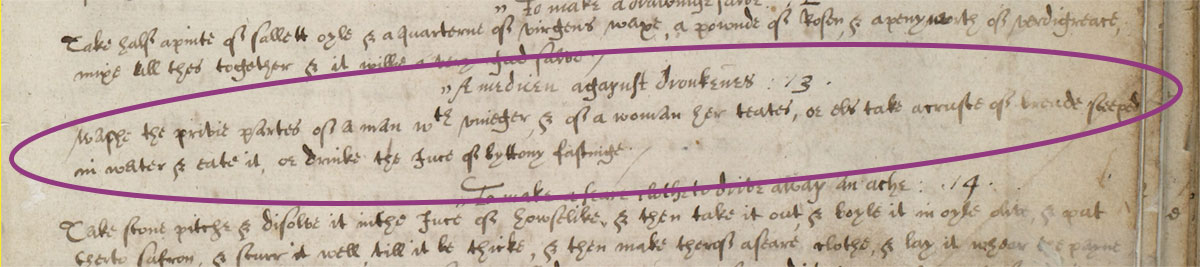 " To make a drawinge salve .
Take half a pinte of sallett oyle & a quarterne of virgens waxe, a pownde of Rosen, & a peny worth of verdigreace,
mixe all thes together & it wilbe a very good salve
" A medicen against dronkenes : 13 .
washe the privie partes of a man wth vineger, & of a woman her teates, or els take a cruste of breade steeped
in water & eate it, or drinke the Juce of byttony fastinge
" To make a seare clothe to drive away an ache : . 14 .
Take stone pitche & disolve it in the Juce of howselike, & then take it out, & boyle it in oyle olive, & put
therto safron, & sturr it well, till it be thicke, & then make therof a seare clothe, & lay it whear the payne